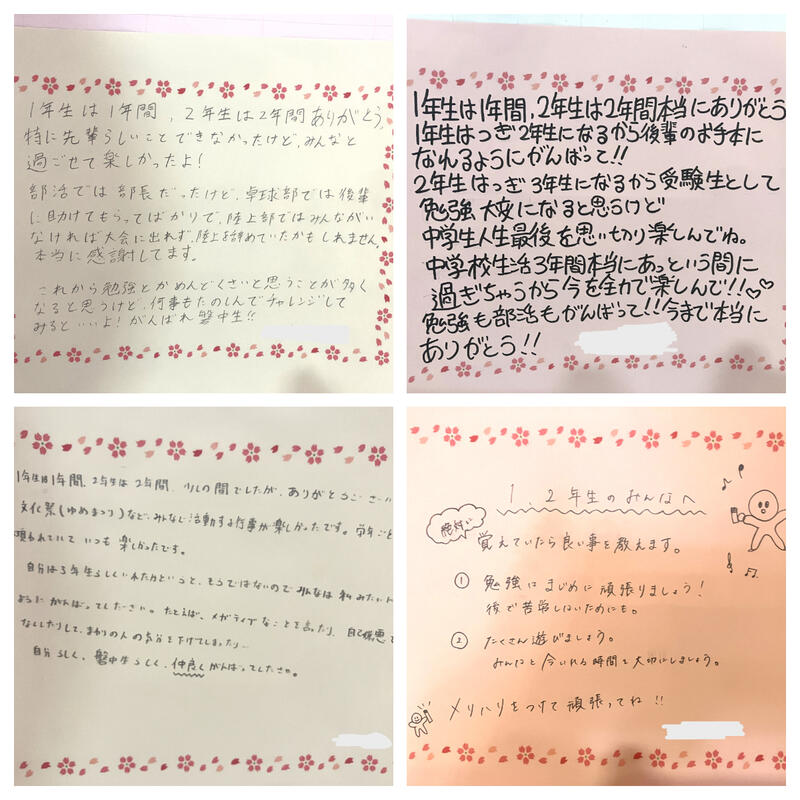 1年生は1年間,2年生は2年間ありがとう。
特に先輩らしいことできなかったけど、みんなと
過ごせて楽しかったよ!
部活では部長だったけど、卓球部では後輩
に助けてもらってばかりで、陸上部ではみんながい
なければ大会に出れず、陸上を辞めていたかもしれません。
本当に感謝してます。
これから勉強とかめんどくさいと思うことが多く
なると思うけど、何事もたのしんでチャレンジして
みるといいよ!がんばれ磐中生!!
1年生は1年間,2年生は2年間本当にありがとう
1年生はつぎ2年生になるから後輩のお手本に
なれるようにがんばって!!
2年生はつぎ3年生になるから受験生として
勉強大変になると思うけど
中学生人生最後を思い切り楽しんでね。
中学校生活3年間本当にあっという間に
過ぎちゃうから今を全力で楽しんで!!♡♡
勉強も部活もがんばって!!今まで本当に
ありがとう!!
1年生は1年間、2年生は2年間、少しの間でしたが、ありがとうござい
文化祭(ゆめまつり)など、みんなで活動する行事が楽しかったです。学年ごと
いつも楽しかったです。
自分は3年生らしい
ようにがんばってください。たとえば、ネガティブなことを言ったり、自己嫌悪
なしたりして、まわりの人の気分を下げてしまったり…
自分らしく、磐中生らしく、仲良くがんばってください。
1、2年生のみんなへ
絶対!!
覚えていたら良い事を教えます。
① 勉強はまじめに頑張りましょう!
後で苦労しないためにも。
② たくさん遊びましょう。
みんなと今いれる時間を大切にしましょう。
メリハリをつけて頑張ってね!!